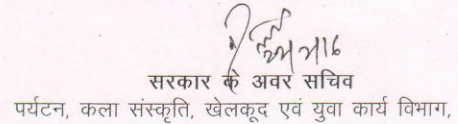 सरकार के अवर सचिव
पर्यटन, कला संस्कृति, खेलकूद एवं युवा कार्य विभाग,